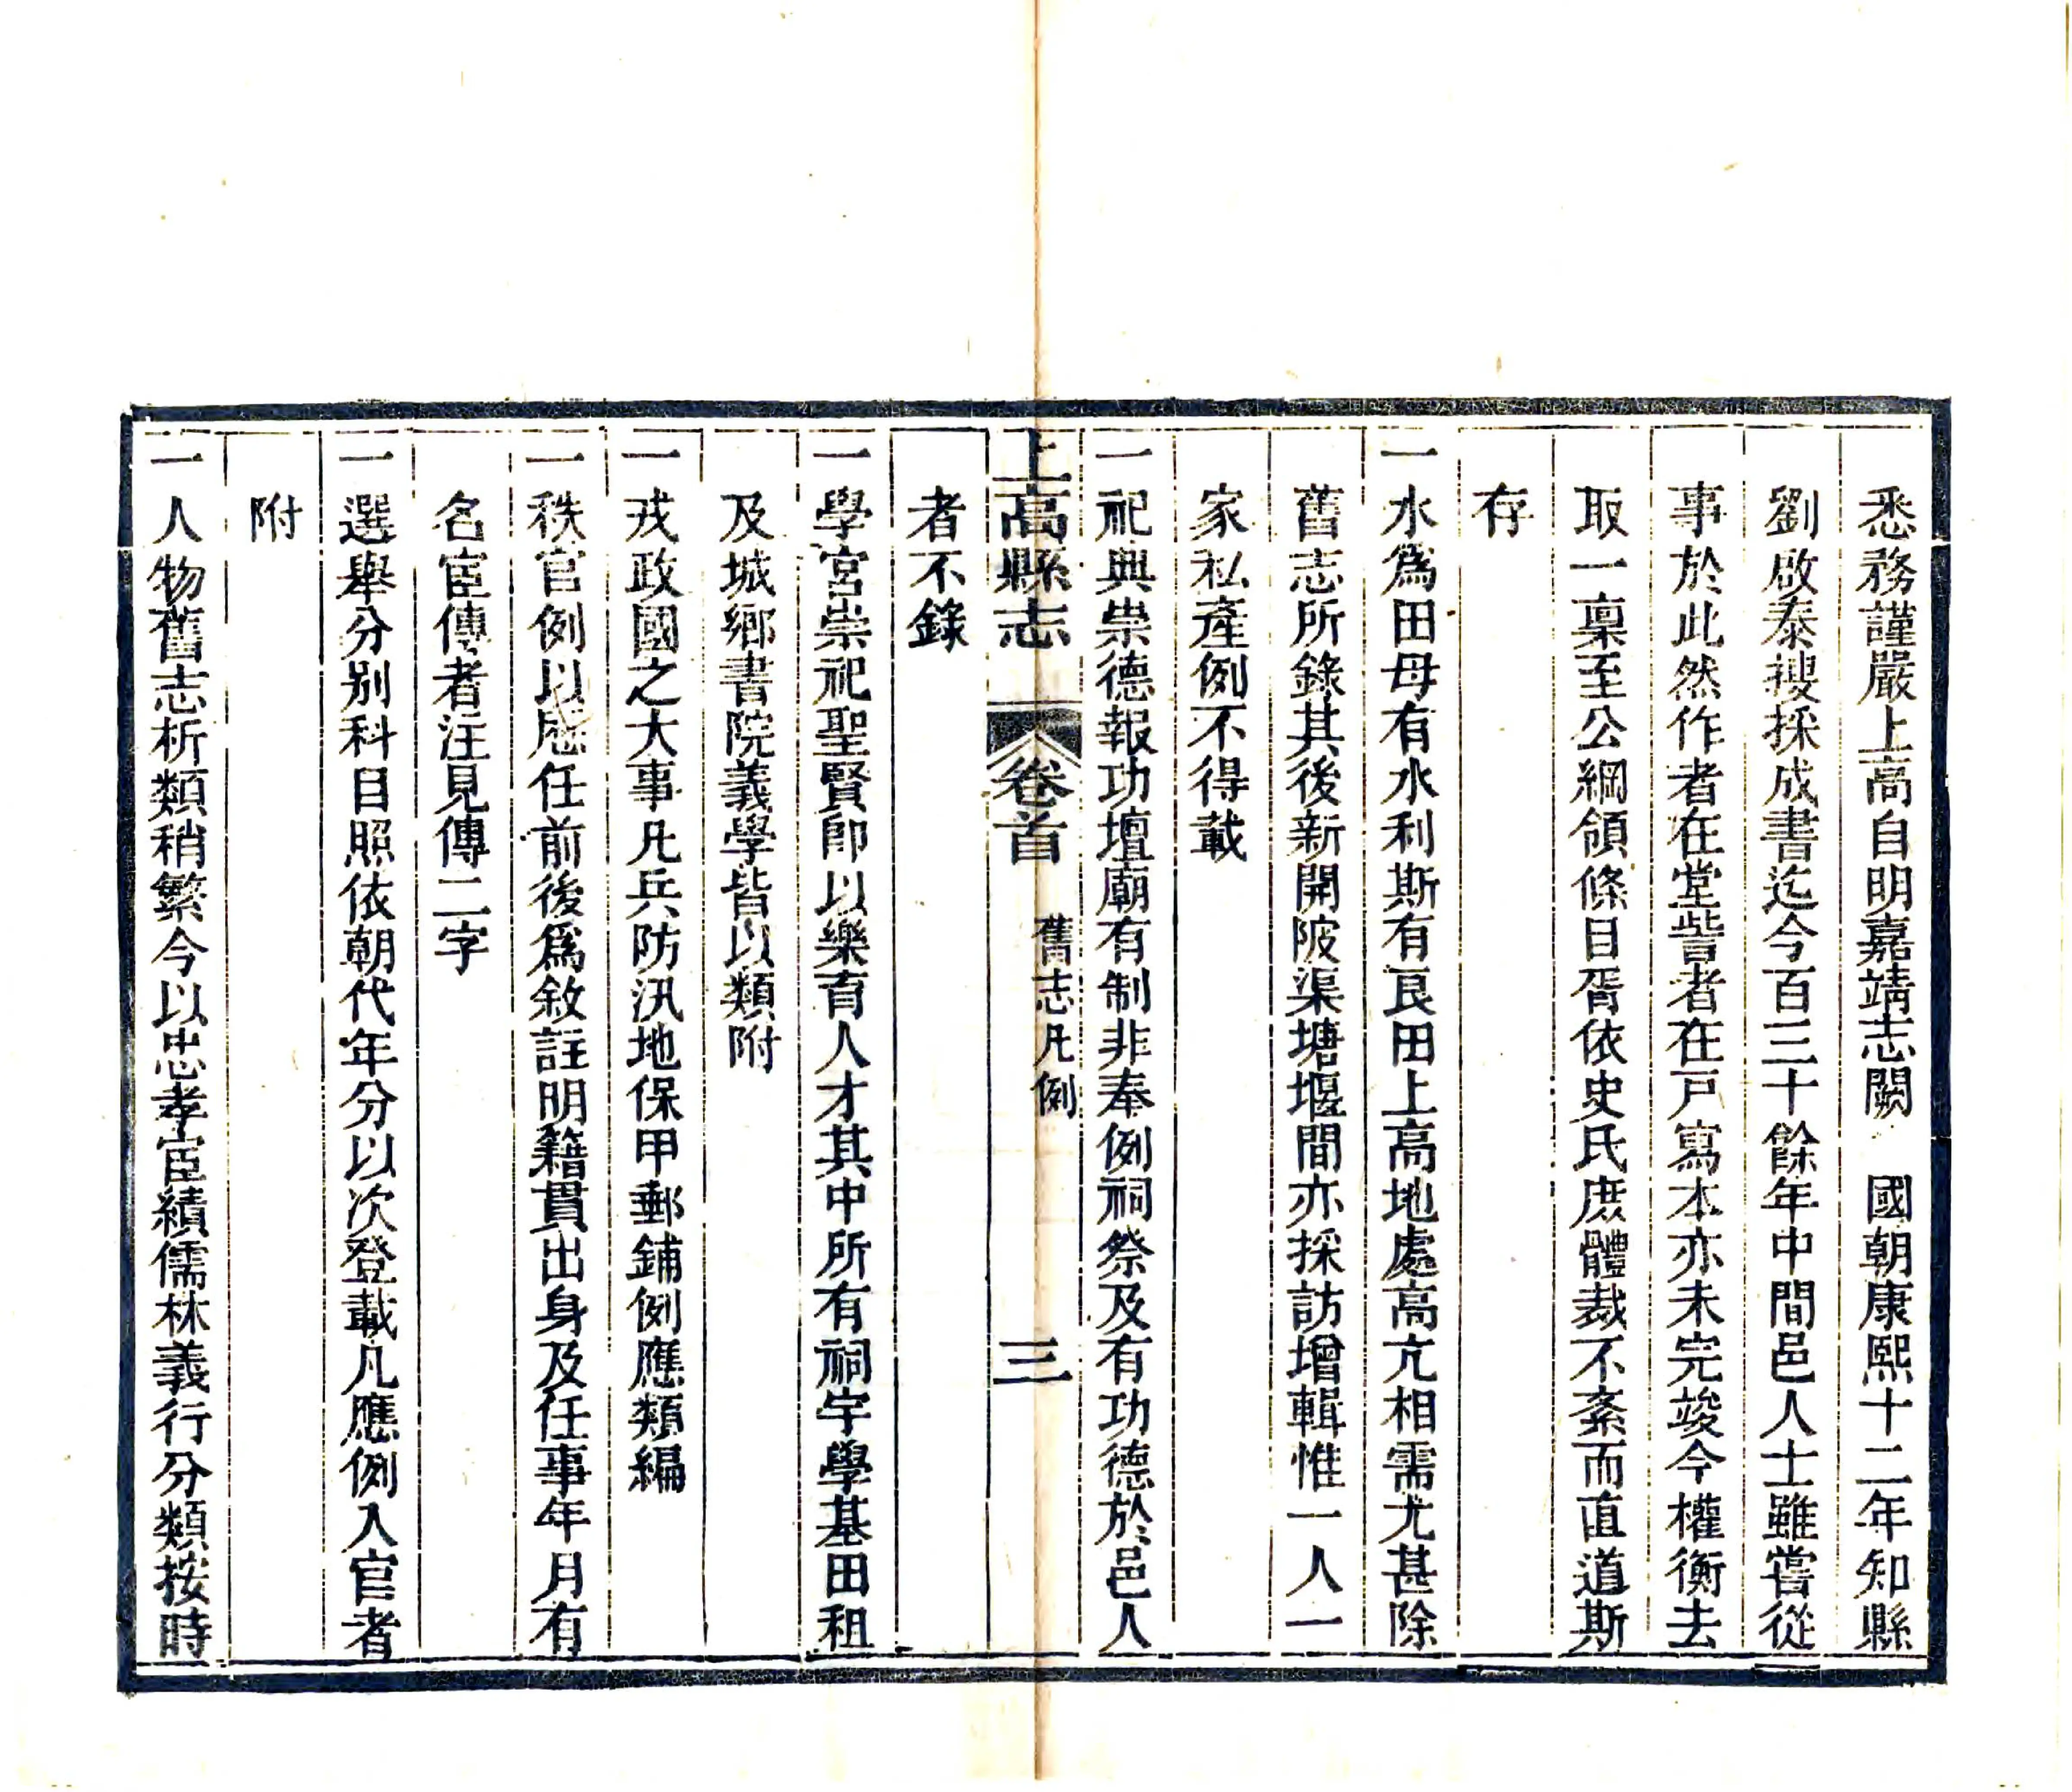 悉務謹嚴上高自明嘉靖志闕　國朝康熙十二年知縣
劉啟泰搜採成書迄今百三十餘年中間邑人士雖嘗從
事於此然作者在堂訾者在戸寫本亦未完竣今權衡去
取一稟至公綱領條目胥依史氏庶體裁不紊而直道斯
存
一水爲田母有水利斯有良田上高地處高亢相需尤甚除
舊志所錄其後新開陂渠塘堰間亦採訪增輯惟一人一
家私產例不得載
一祀典崇德報功壇廟有制非奉例祠祭及有功德於邑人
上高縣志　卷首　舊志凡例　三
者不錄
一學宮崇祀聖賢卽以樂育人才其中所有祠宇學基田租
及城鄉書院義學皆以類附
一戎政國之大事凡兵防汛地保甲郵鋪例應類編
一秩官例以歴任前後爲敘註明籍貫出身及任事年月有
名宦傳者注見傳二字
一選舉分別科目照依朝代年分以次登載凡應例入官者
附
一人物舊志析類稍繁今以忠孝宦績儒林義行分類按時